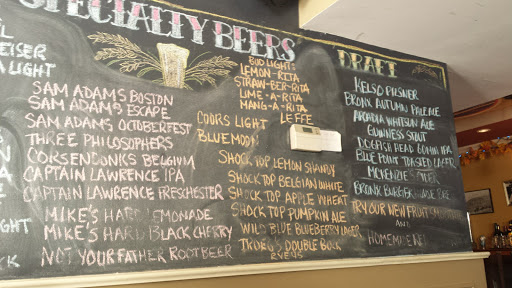 SPECIALTY BEERS
EISER
A LIGHT
SAM ADAMS BOSTON
SAM ADAMS ESCAPE
SAM ADAMS OCTOBERFEST
THREE PHILOSOPHERS
CORSENDONKS BELGIUM
CAPTAIN LAWRENCE IPA
CAPTAIN LAWRENCE FRESCHESTER
MIKE'S HARD LEMONADE
MIKE'S HARD BLACK CHERRY
NOT YOUR FATHER ROOT BEER
LIGHT
COORS LIGHT
BLUE MOON
BUD LIGHT
LEMON-RITA
STRAW-BER-RITA
LIME-A-RITA
MANG-A-RITA
LEFFE
SHOCK TOP LEMON SHANDY
SHOCK TOP BELGIAN WHITE
SHOCK TOP APPLE WHEAT
SHOCK TOP PUMPKIN ALE
WILD BLUE BLUEBERRY LAGER
TROEG'S DOUBLE BOCK
DRAFT
KELSO PILSNER
BRONX AUTUMN PALE ALE
ARCADIA WHITSUN ALE
GUINNESS STOUT
DOGFISH HEAD 60MIN IPA
BLUE POINT TOASTED LAGER
MCKENZIE
BRONX BURGER HOUSE
TRY OUR NEW FRUIT
AND
HOMEMADE